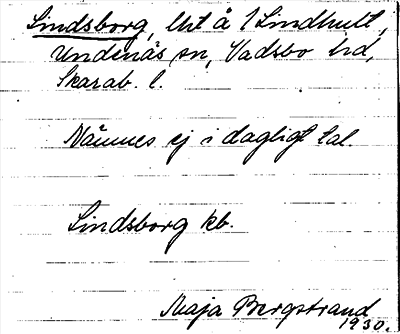 Lindsborg, lht å 1 Lindhult,
Undenäs sn, Vadsbo hd,
Skarab. l.
Nämnes ej i dagligt tal.
Lindsborg kb.
Maja Bergstrand
1930.